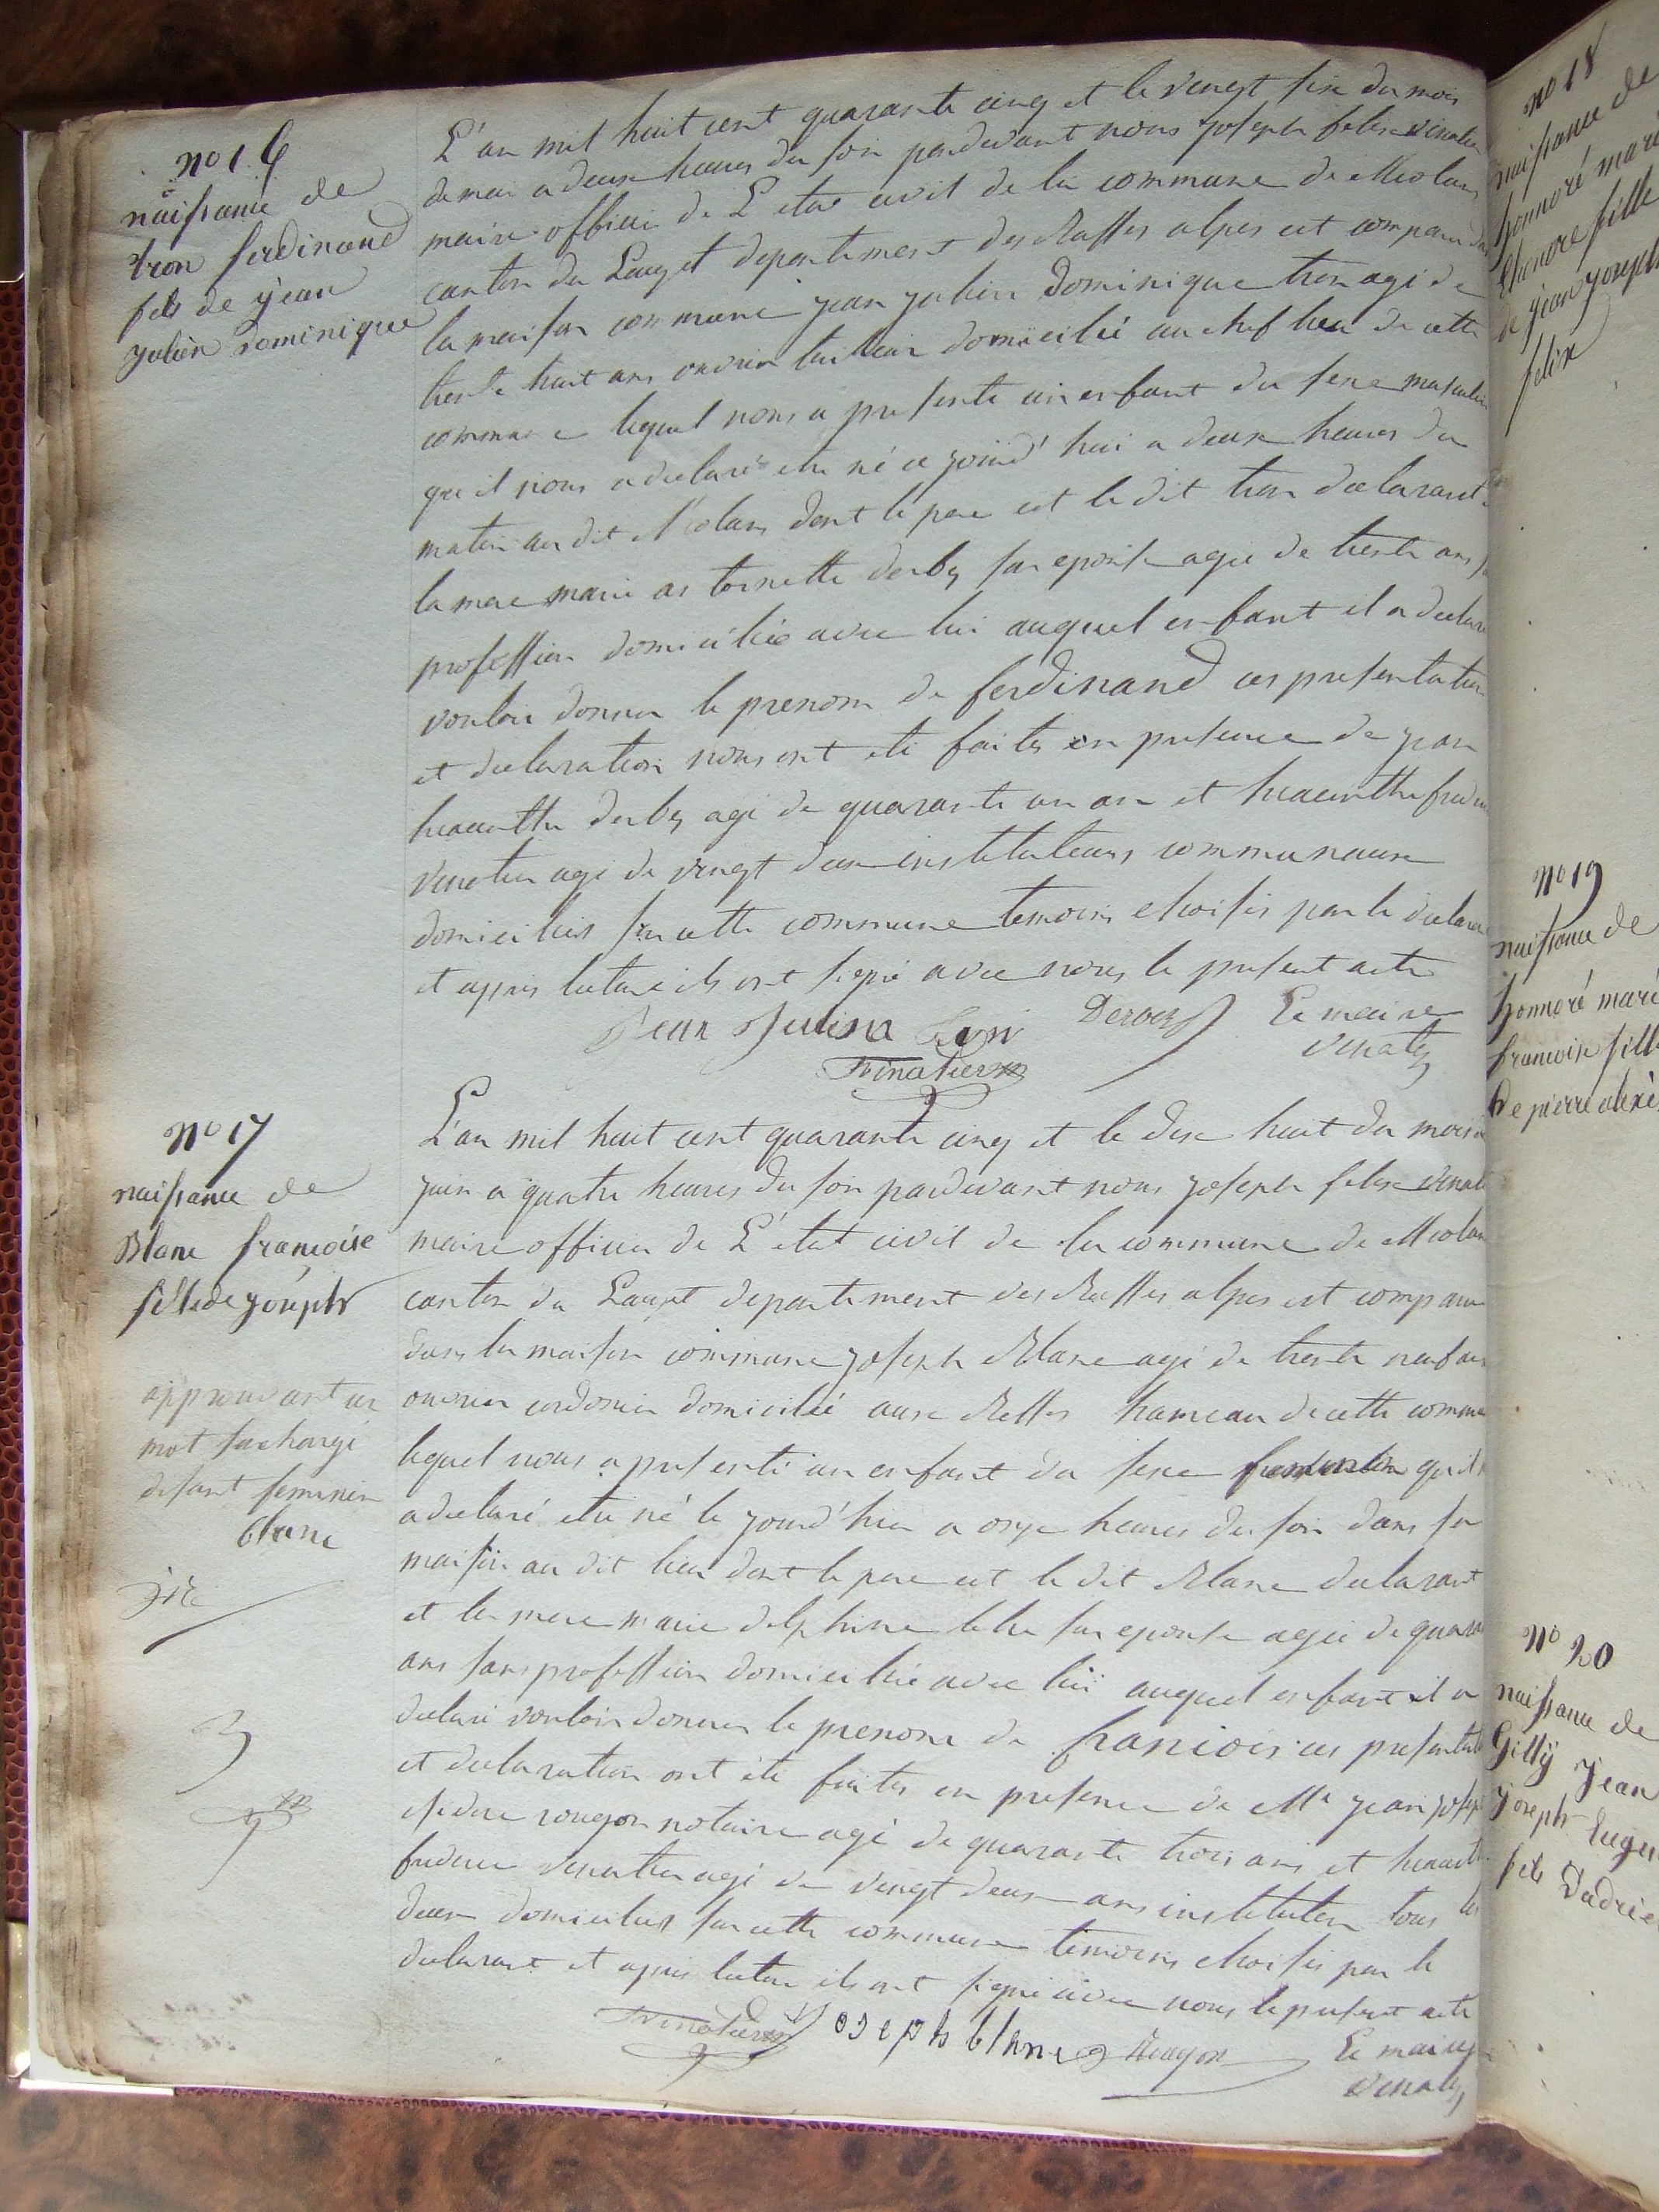 no 16
naissance de
tron ferdinand
fils de jean
julien dominique
L'an mil huit cent quarante cinq et le vengt six du mois
de mai a deux heures du soir pardevant nous joseph felix vinatier
maire officier de L'etat civil de la commune de Meolans
canton du Lauzet departement des Basses alpes est comparu dans
la maison commune jean julien Dominique tron agé de
trente huit ans ouvrier tailleur domicilié au chef lieu de cette
commune lequel nous a presenté un enfant du sexe masculin
qu'il nous a declaré etre né ce jourd'hui a deux heures du
matin au dit Meolans dont le pere est le dit tron declarant
la mere marie antoinette derbez son epouse agée de trente ans
profession domiciliée avec lui auquel enfant il a declaré
vouloir donner le prenom de ferdinand ces presentation
et declaration nous ont été faites en presence de jean
hiacinthe derbez agé de quarante un an et hiacinthe frederic
vinatier agé de vengt deux instituteurs communaux
domiciliés sur cette commune temoins choisis par le declarant
et apres lecture ils ont signé avec nous le present acte
Jean Julien tron Derbez Le maire
Vinatier Vinatier
no 17
naissance de
Blanc françoise
fille de joseph
approuvant un
mot surchargé
disant feminin
blanc
L'an mil huit cent quarante cinq et le dix huit du mois de
juin a quatre heures du soir pardevant nous joseph felix vinatier
maire officier de L'état civil de la commune de Meolans
canton du Lauzet departement des Basses alpes est comparu
dans la maison commune joseph Blanc agé de trente neuf ans
ouvrier cordonier domicilié aux hameau de cette commune
lequel nous a presenté un enfant du sexe feminin qu'il
a declaré etre né le jourd'hier a onze heures du soir dans sa
maison au dit lieu dont le pere est le dit Blanc declarant
et la mere marie delphine son epouse agée de quarante
ans sans profession domiciliée avec lui auquel enfant il a
declaré vouloir donner le prenom de francoise ces presentation
et declaration ont été faites en presence de Me jean joseph
isidore rougon notaire agé de quarante trois ans et hiacinthe
frederic vinatier agé de vengt deux ans instituteur tous les
deux domiciliés sur cette commune temoins choisis par le
declarant et apres lecture ils ont signé avec nous le present acte
Vinatier Joseph blanc Rougon Le maire
Vinatier
no 18
naissance de
honnoré marie
fille
de jean joseph
felix
no 19
naissance de
honnoré marie
francoise fille
de pierre alexis
no 20
naissance de
Gilly jean
joseph Eugene
fils